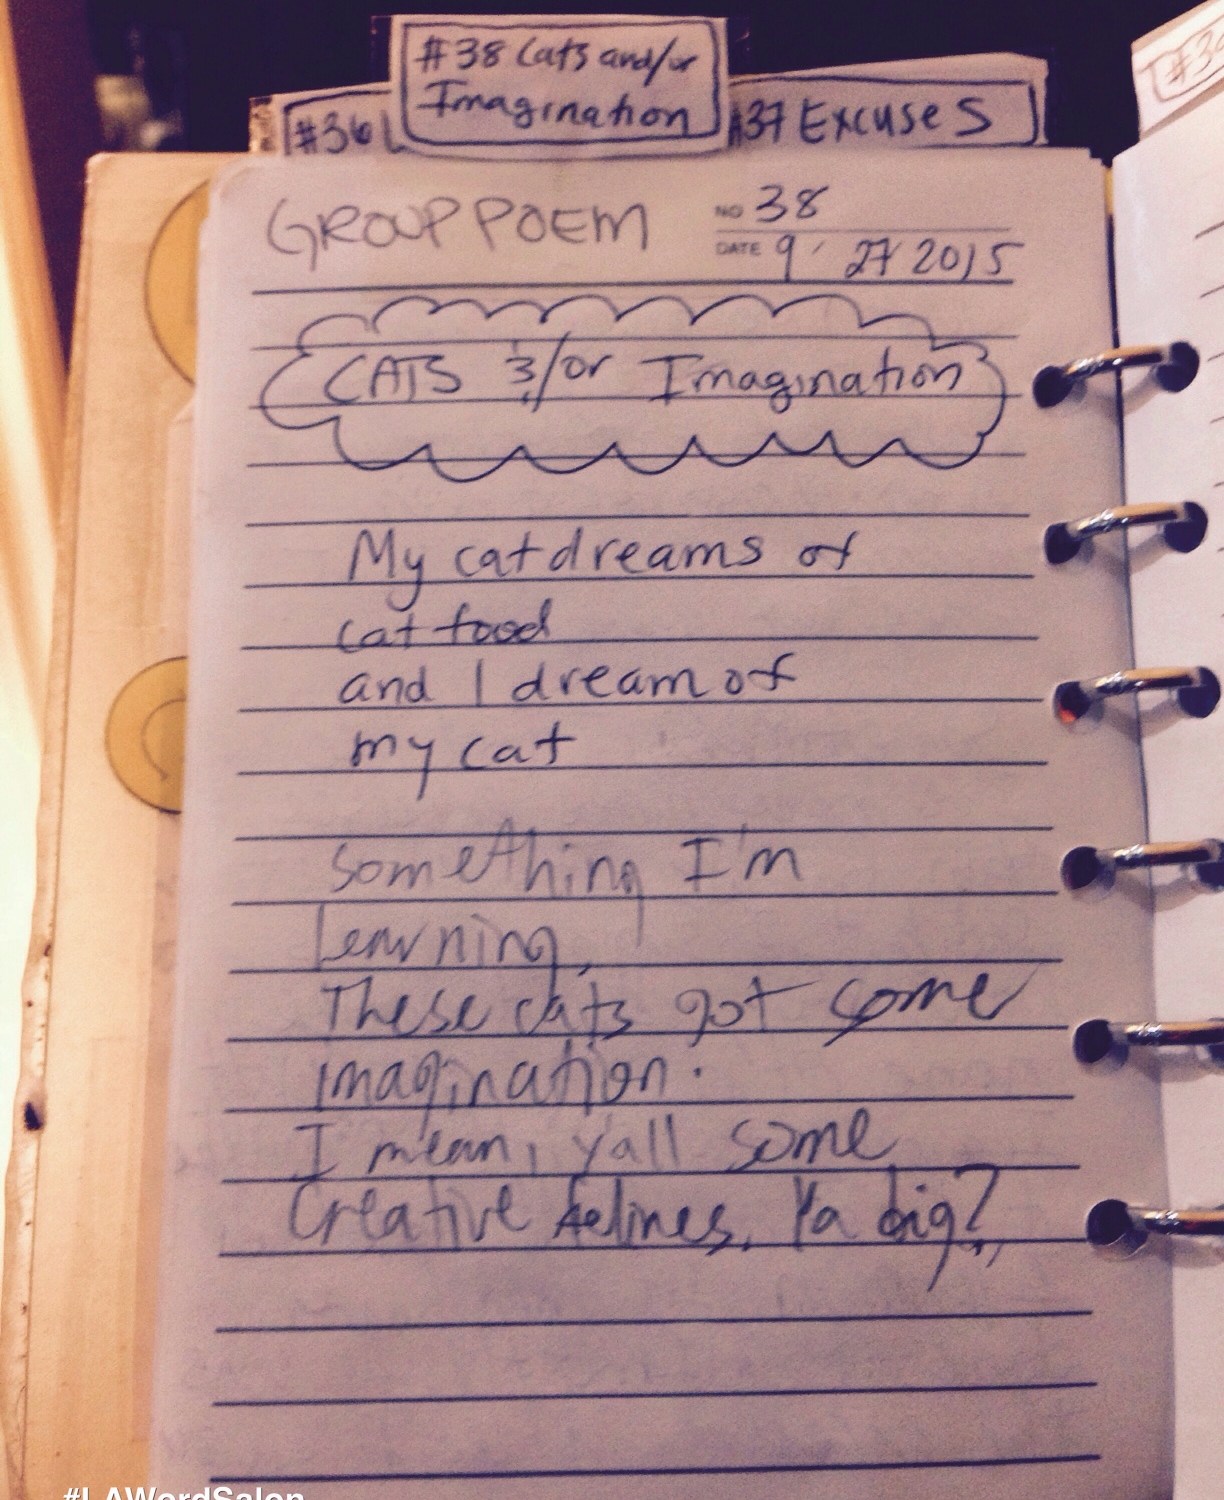 #38 Cats and/or
Imagination
#36
#37 Excuses
GROUP POEM
NO 38
DATE 9 27 2015
CATS &/or Imagination
My cat dreams of
cat food
and I dream of
my cat
something I'm
learning,
These cats got some
imagination.
I mean, y'all some
Creative felines, Ya dig?
#LAWordSalon